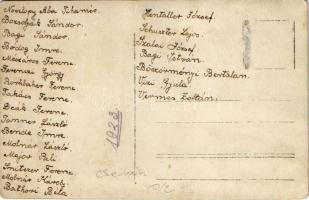 Bozsoghi Sándor.
Bagi Sándor.
Bodog Imre.
Mészáros Ferenc.
Ferenczi György
Rorhbaher Ferenc.
Takács Ferenc.
Deák Ferenc.
Tanner László
Bende Imre
Molnár László.
Major Pali
Snitzer Ferenc.
Molnár Károly.
Bathori Béla
Hentaller József.
Schuszter Lajos.
Szalai József.
Bagi István.
Böszörményi Bertalan.
Vizi Gyula
Vermes Zoltán.
1923